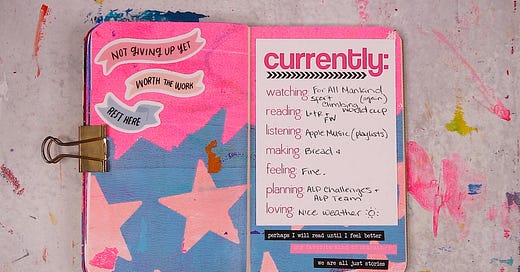 NOT GIVING UP YET
WORTH THE WORK
REST HERE
currently:
watching For All Mankind (again)
sport climbing world cup
reading LTR + FW
listening Apple Music (playlists)
making Bread +
feeling Fine.
planning ALP Challenges + ALP Team
loving Nice weather
perhaps I will read until I feel better
we are all just stories